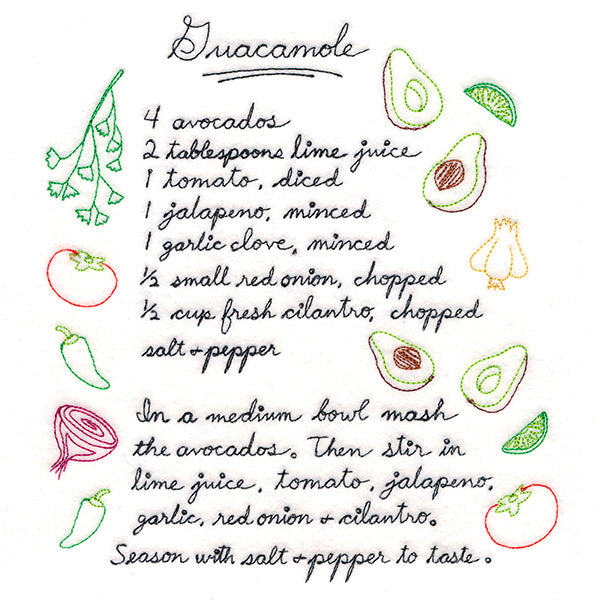 Guacamole
4 avocados
2 tablespoons lime juice
1 tomato, diced
1 jalapeno, minced
1 garlic clove, minced
½ small red onion, chopped
½ cup fresh cilantro, chopped
salt + pepper
In a medium bowl mash
the avocados. Then stir in
lime juice, tomato, jalapeno,
garlic, red onion + cilantro.
Season with salt + pepper to taste.